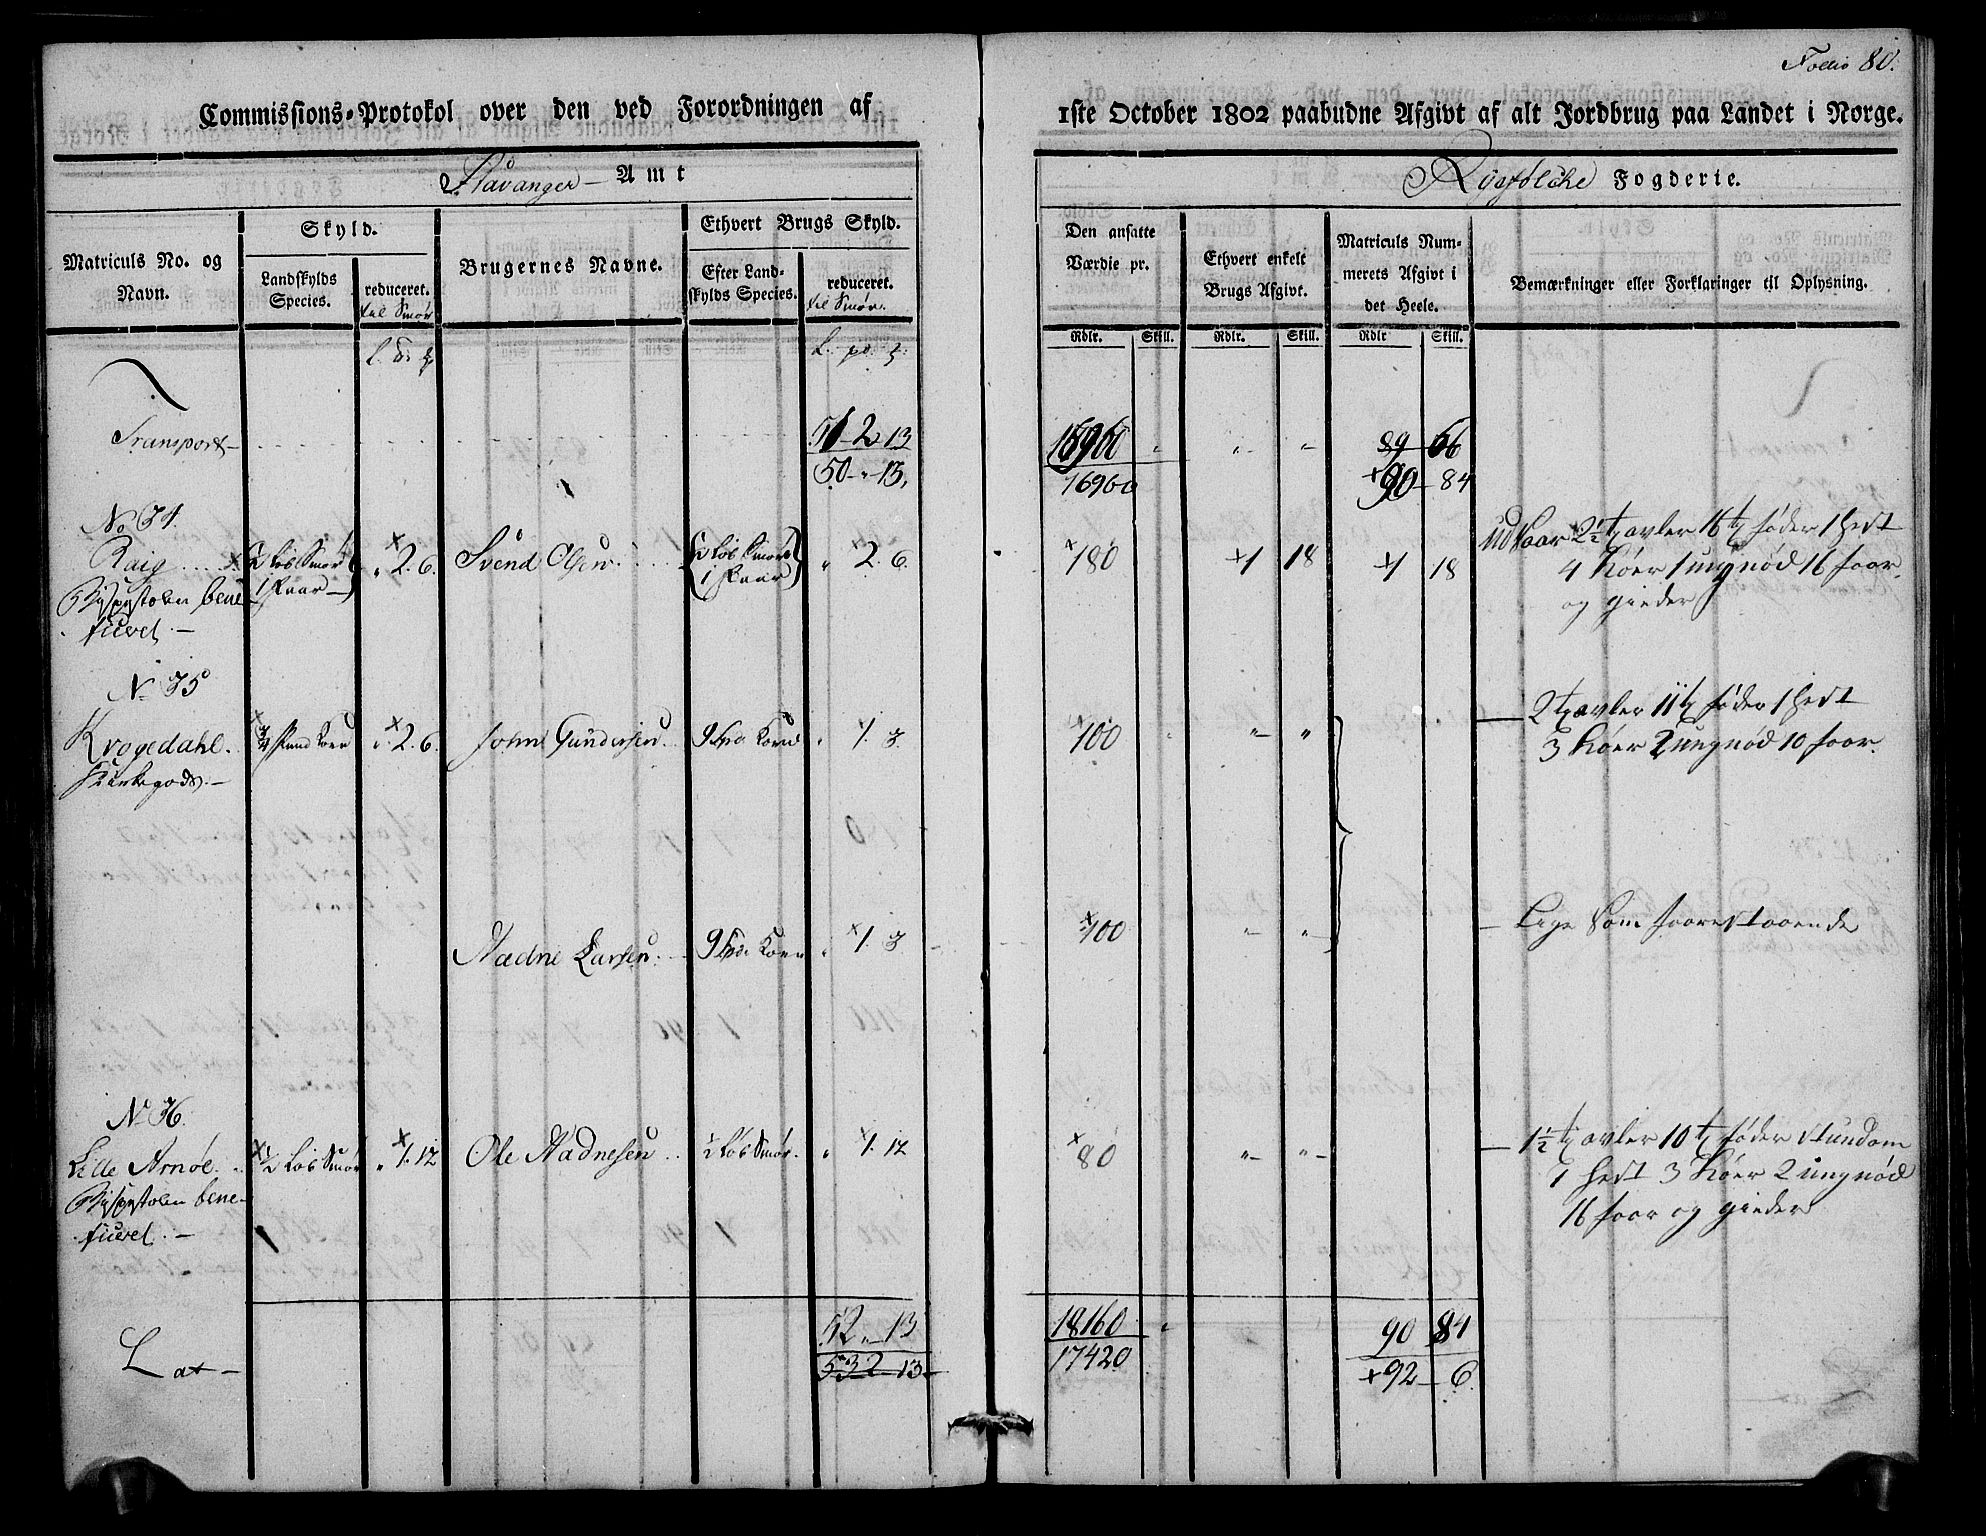 Folio 80.
Commissions-Protokol over den ved Forordningen af 1ste October 1802 paabudne Afgivt af alt Jordbrug paa Landet i Norge.
Stavanger Amt
Ryefølcke Fogderie.
Matriculs No. og Navn.
Skyld.
Landskylds Species.
reduceret.
til Smør
Brugernes Navne.
Ethvert Brugs Skyld.
Efter Landskylds Species.
reduceret.
til Smør.
Den ansatte Værdie pr.
Ethvert enkelt Brugs Afgivt.
Matriculs Nummerets Afgivt i det Heele.
Bemærkninger eller Forklaringer til Oplysning.
Rdlr. Skill. Rdlr. Skill. Rdlr Skill.
Transport 51 2 13 89 66
50 " 13 16960 90 84
No 34.
Raig ½ Løb Smør 1 Faar " 2. 6. Svend Olsen ½ Løb Smør 1 Faar " 2. 6. 180 1 18 1 18
Bispestolen beneficeret.
Udsaar 2½ t avler 16 t føder 1 hest
4 Køer 1 ungnød 16 faar
og gieder
No 35
Krogedahl. ¾ Pund Korn " 2. 6. John Gundersen 9 Korn " 1. 3 100 " "
Kirkegods.
2 t avler 11 t føder 1 hest
3 Køer 2 ungnød 10 faar.
Nadne Larsen 9 Korn " 1. 3 100 " "
Lige som faarestaaende
No 36.
Lille Arnøe ½ Løb Smør " 1. 12 Ole Nadnesen ½ Løb Smør " 1. 12 80 " "
Bispestolen beneficeret.
1½ t avler 10 t føder stundom
1 hest 3 Køer 2 ungnød
16 faar og gieder
Lat 52 " 13 18160 90 84
53 2 13 17420 92 6